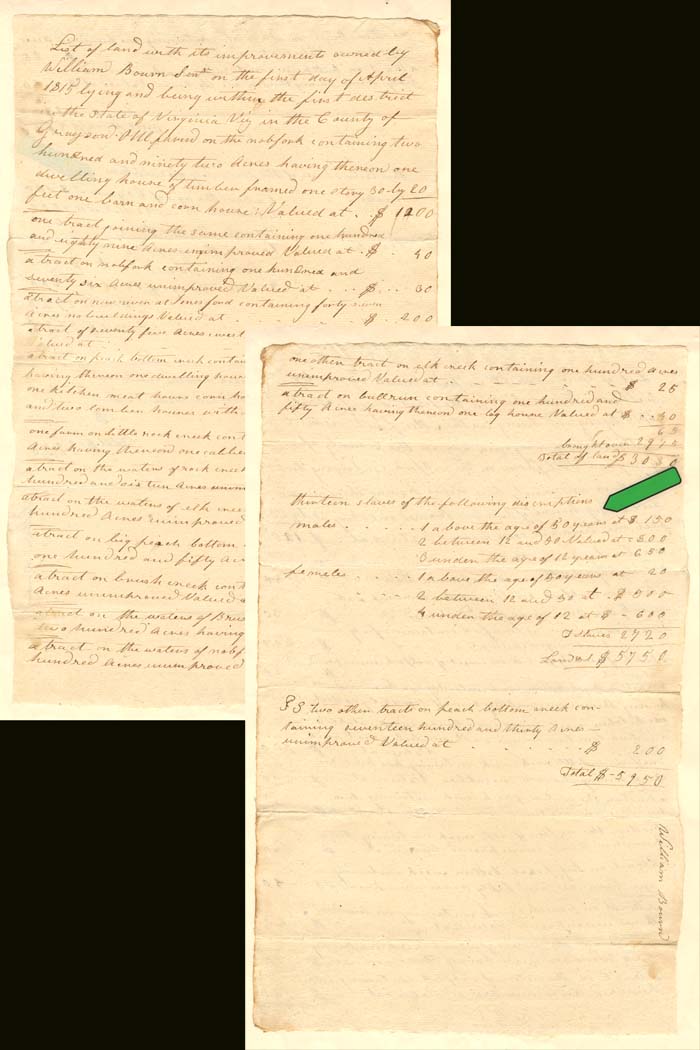 List of land with its improvements owned by
William Bourn Senr on the first day of April
1815 lying and being within the first destrict
in the State of Virginia Viz in the County of
Grayson. on the nobfork containing two
hundred and ninety two Acres having thereon one
dwelling house of timber framed one story 30 by 20
feet one barn and corn house: Valued at . $ 1200
one tract joining the same containing one hundred
and eighty nine Acres unimproved Valued at . $ . 40
a tract on nobfork containing one hundred and
seventy six Acres unimproved Valued at . . $ . . 30
a tract on new river at containing forty seven
Acres no buildings Valued at . . . $ . 200
a tract of seventy five Acres
Valued at :
a tract on peach bottom creek contai
having thereon one dwelling hous
one kitchen meat house corn ho
and two other houses with
one farm on little rock creek cont
Acres having thereon one
a tract on the waters of rock creek
hundred and six teen Acres unim
a tract on the waters of elk cree
hundred Acres unimproved
a tract on big peach bottom
one hundred and fifty Ac
a tract on brush creek cont
Acres unimproved Valued a
a tract on the waters of Brus
two hundred Acres having
a tract on the waters of nobf
hundred Acres unimproved
one other tract on elk creek containing one hundred Acres
unimproved Valued at . . . . $ 25
a tract on bullrun containing one hundred and
fifty Acres having thereon one log house Valued at $ . . 40
65
brought over 29
Total of land $ 3030
thirteen slaves of the following discriptions
males . . . . 1 above the age of 50 years at $ 150
2 between 12 and 50 Valued at . 800
3 under the age of 12 years at 650
females . . . . 1 above the age of 50 years at 20
2 between 12 and 50 at . $ 500
4 under the age of 12 at $ - 600
Slaves 2720
Land $ 5750
P S two other tracts on peach bottom creek con-
taining seventeen hundred and thirty Acres —
unimproved Valued at . . . . $ 200
Total $ - 5950
William Bourn